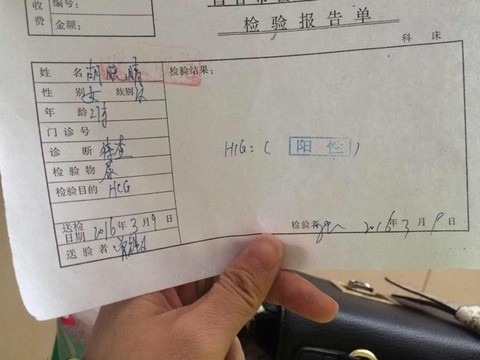 收费
编号：
金额：
检验报告单
科 床
姓 名 胡晓晴
检验结果：
性 别 女 族别 汉
年 龄 27岁
门诊号
诊 断 待查
检 验 物 尿
检验目的 HCG
HCG：（阳性）
送检日期 2016年3月9日
送 验 者
检验者 2016年3月9日